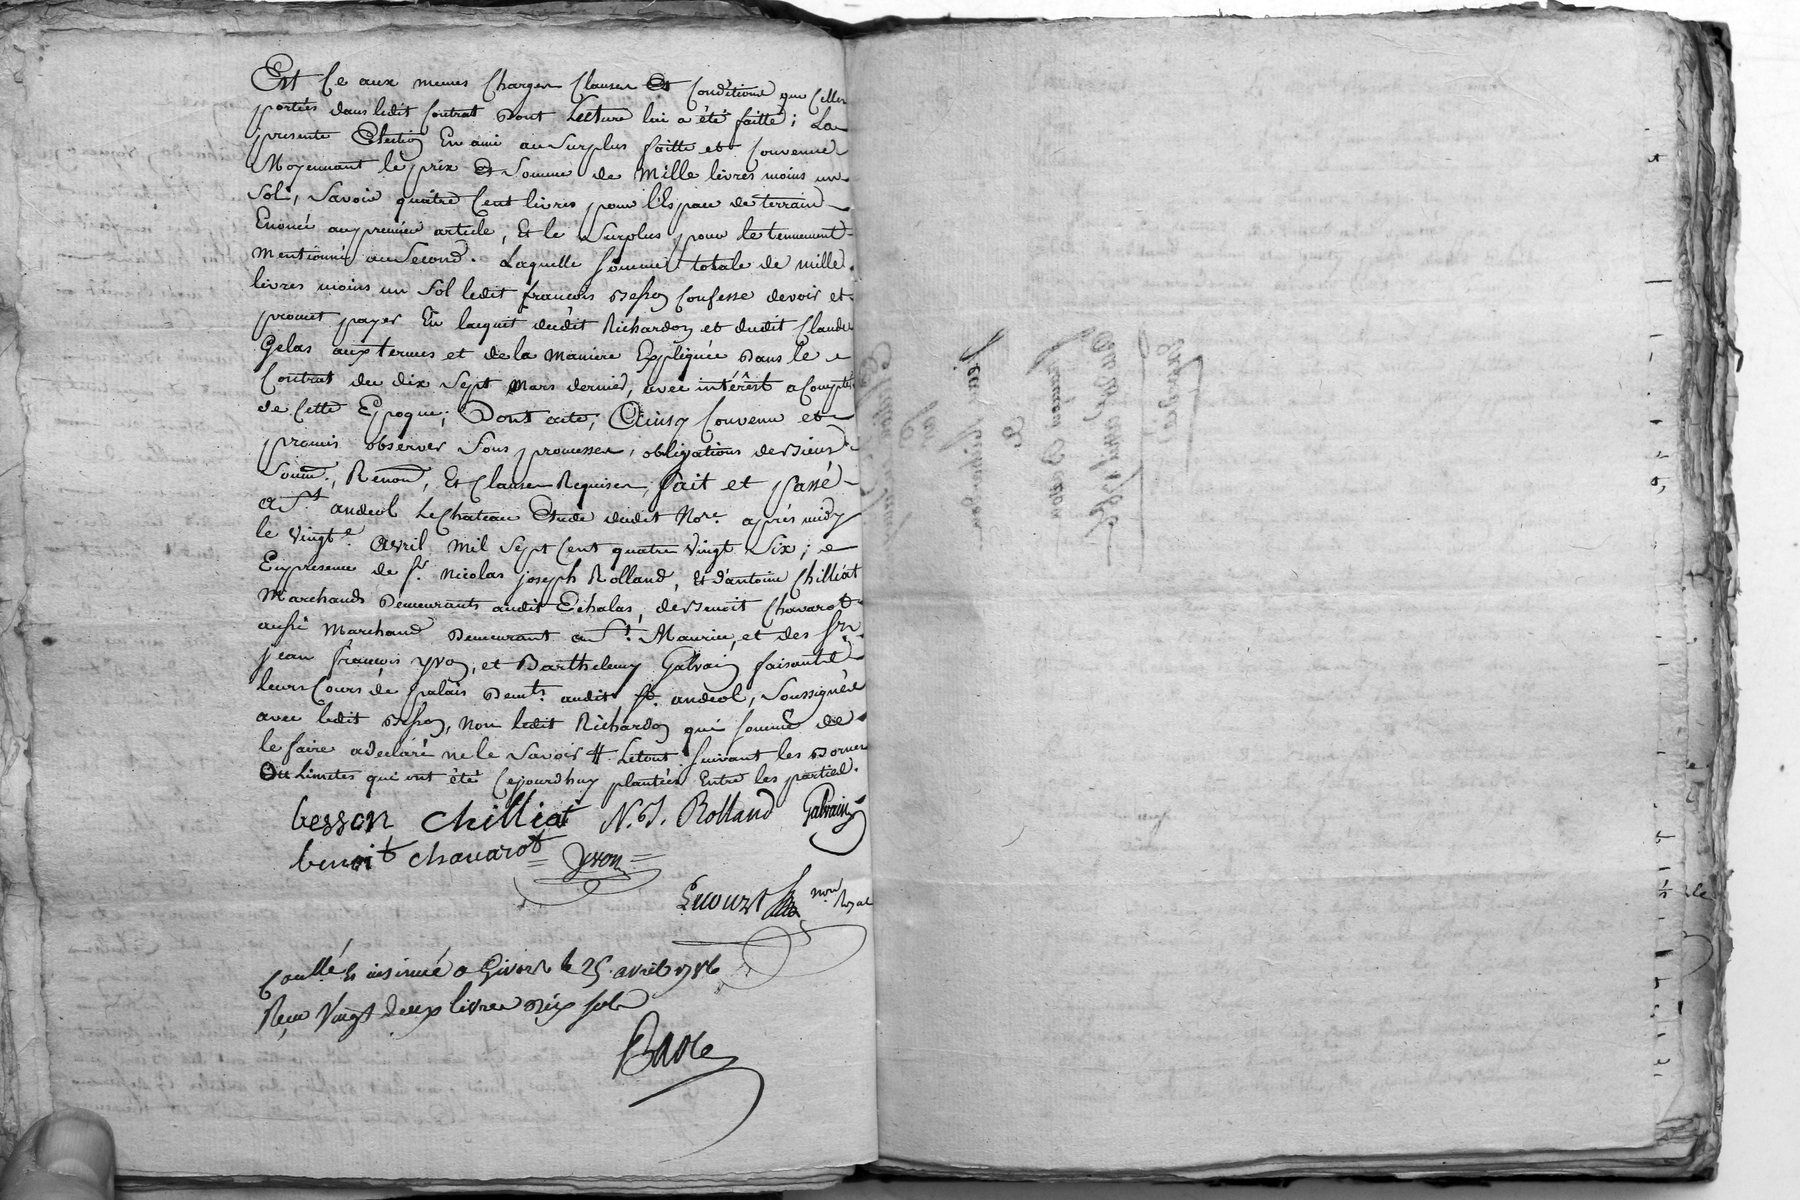 Est Ce aux memes Charges Clauses Et Conditions que Celles
portées dans ledit Contrat Dont Lecture lui a été faitte; La
presente Election En ami au Surplus faitte et Convenue
Moyennant le prix Et Somme de Mille livres moins un
Sol, Savoir quatre Cent livres pour l'Espace de terrain
Enoncé au premier article, Et le Surplus pour le tennement
Mentionné au Second. Laquelle Somme totale de mille
livres moins un Sol ledit françois Besson Confesse devoir et
promet payer En lacquit dudit Richardon et dudit Claude
Gelas aux termes et de la Maniere Expliquée Dans le
Contrat du dix Sept Mars dernier, avec intérêst a Compter
de Cette Epoque; Dont acte, Ainsy Convenu et
promis observer Sous promesses, obligations de Biens
Soum., Renon., Et Clauses Requises, fait et passé
a St. andeol Le Chateau Etude dudit Nore. après midy
le Vingt. avril Mil Sept Cent quatre Vingt Six; e
En presence de sr. Nicolas joseph Rolland, Et d'antoine Chilliat
Marchands Demeurants audit Echalas, de Benoit Chavarot
aussi Marchand Demeurant a St. Maurice, et des Srs.
jean françois yvon, et Barthelemy Galvain faisant
leurs Cours de palais Demts. audit St. andeol, Soussignés
avec ledit Besson, Non ledit Richardon qui sommé de
le faire a declaré ne le Savoir # Le tout Suivant les Bornes
Ou Limites qui ont été Cejourdhuy plantées Entre les parties.
besson chilliat N. J. Rolland Galvain
benoit chavarot yvon
Lecourt nore Royal
Conllé & insinué a Givors le 25. avril 1786
Reçu Vingt deux livres dix sols